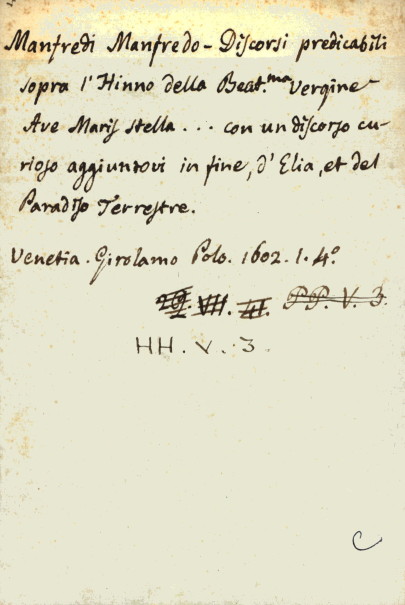 Manfredi Manfredo - Discorsi predicabili
sopra l'Hinno della Beat.ma Vergine
Ave Maris stella... con un discorso cu-
rioso aggiuntovi in fine, d'Elia, et del
Paradiso Terrestre.
Venetia. Girolamo Polo. 1602. 1. 4.°
VII. III. PP. V. 3.
HH. V. 3
C